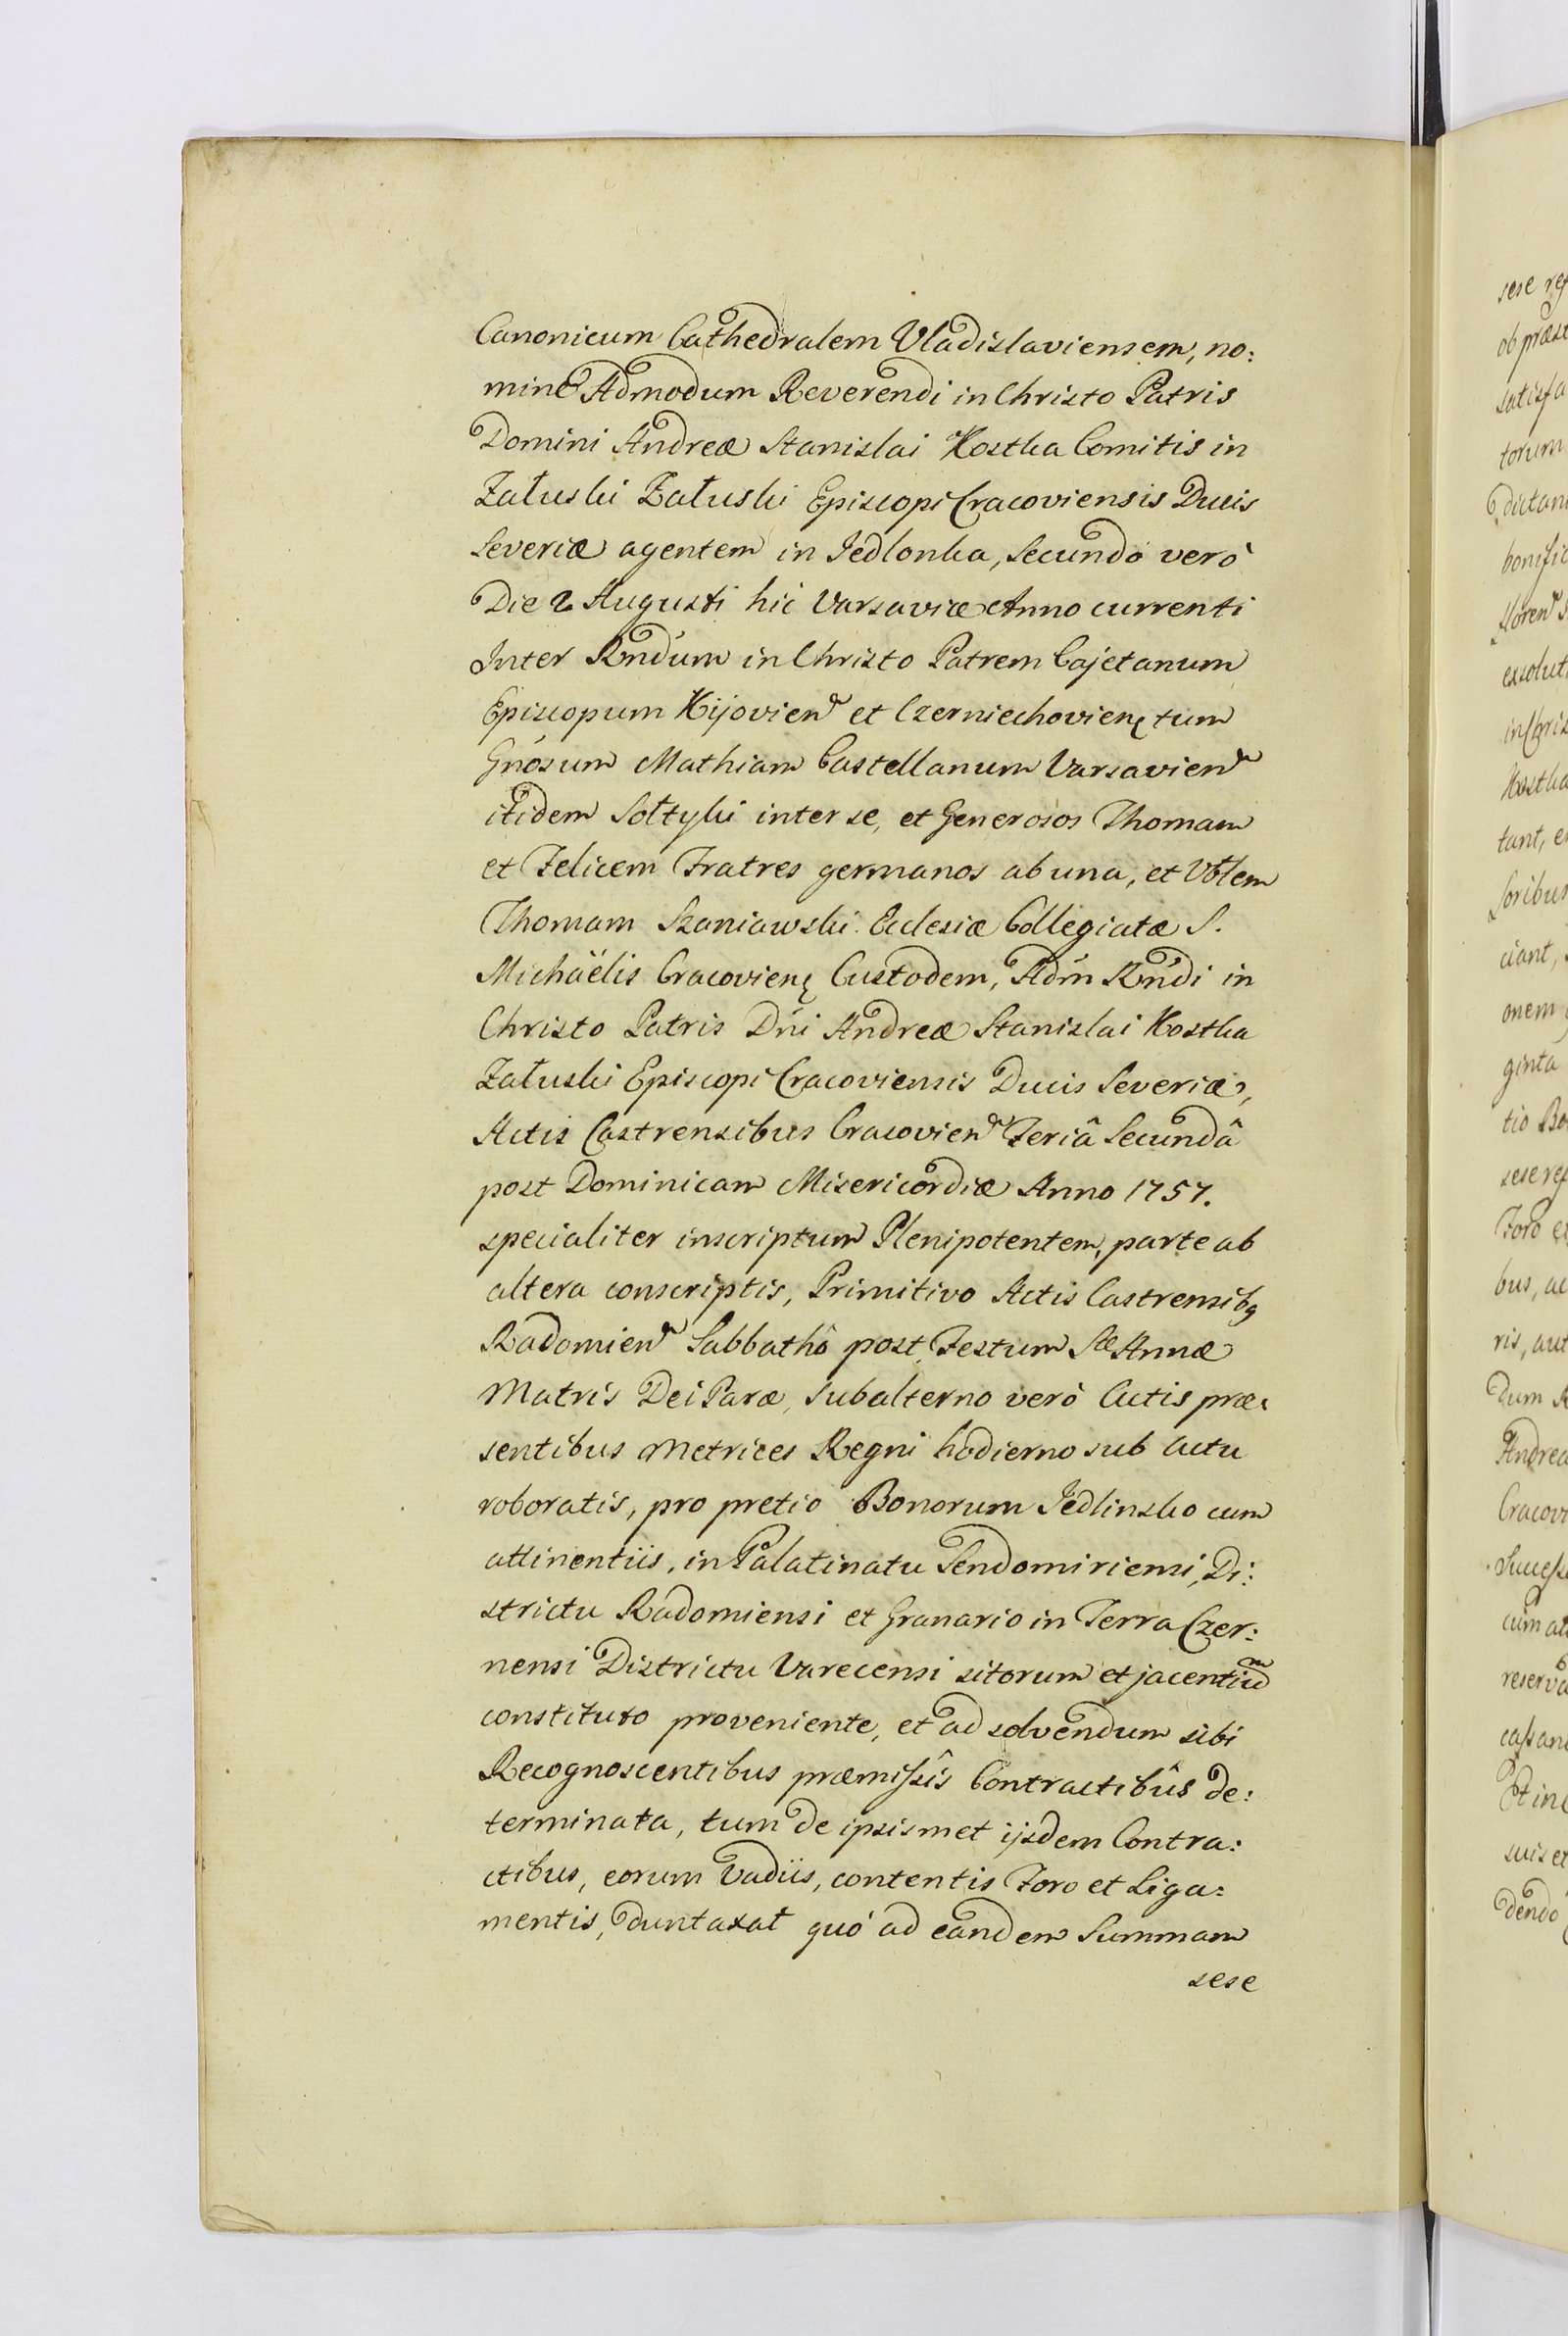 Canonicum Cathedralem Vladislaviensem, no:
mine Admodum Reverendi in Christo Patris
Domini Andreæ Stanislai Kostka Comitis in
Załuski Załuski Episcopi Cracoviensis Ducis
Severiæ agentem in Jedlonka, Secundo verò
Die 2 Augusti hic Varsaviæ Anno currenti
Inter Rndum in Christo Patrem Cajetanum
Episcopum Kijovien et Czerniechovien tum
Gnosum Mathiam Castellanum Varsavien
itidem Sołtyki inter se, et Generosos Thomam
et Felicem Fratres germanos ab una, et Vblem
Thomam Szaniawski Ecclesiæ Collegiatæ S.
Michaëlis Cracovien Custodem, Adm Rndi in
Christo Patris Dni Andreæ Stanislai Kostka
Załuski Episcopi Cracoviensis Ducis Severiæ,
Actis Castrensibus Cracovien Feriâ Secundâ
post Dominicam Misericordiæ Anno 1757.
specialiter inscriptum Plenipotentem, parte ab
altera conscriptis, Primitivo Actis Castrensibq
Radomien Sabbathô post Festum Stæ Annæ
Matris Dei Paræ, Subalterno verò Actis præ:
sentibus Metrices Regni hodierno sub actu
roboratis, pro pretio Bonorum Jedlinsko cum
attinentiis, in Palatinatu Sendomiriensi, Di:
strictu Radomiensi et Granario in Terra Czer:
nensi Districtu Varecensi sitorum et jacentium
constituto proveniente, et ad solvendum sibi
Recognoscentibus præmissîs Contractibûs de:
terminata, tum de ipsismet ijsdem Contra:
ctibus, eorum Vadiis, contentis Foro et Liga:
mentis, duntaxat quó ad eandem Summam
sese